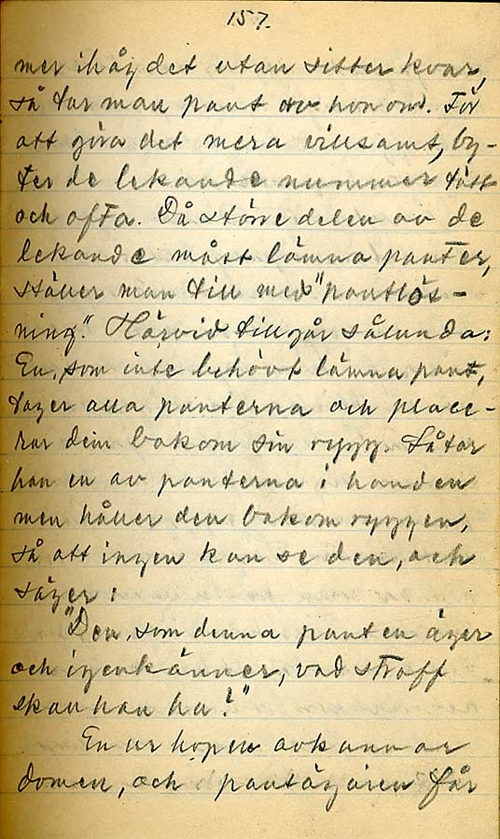 157.
mer ihåg det utan sitter kvar,
så tar man pant av honom. För
att göra det mera villsamt, by-
ter de lekande nummer tätt
och ofta. Då större delen av de
lekande måst lämna panter,
ställer man till med "pantlös-
ning". Härvid tillgår sålunda:
En, som inte behövt lämna pant,
tager alla panterna och place-
rar dem bakom sin rygg. Så tar
han en av panterna i handen
men håller den bakom ryggen,
så att ingen kan se den, och
säger:
"Den, som denna panten äger
och igenkänner, vad straff
skall han ha?"
En ur hopen avkunnar
domen, och pantägaren får